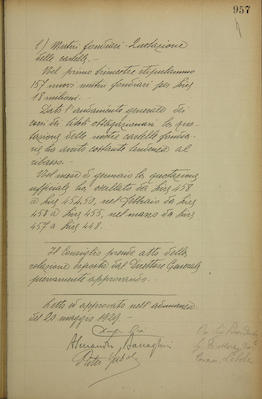 957
1) Mutui fondiari - Quotazione
delle cartelle.
Nel primo trimestre stipulammo
157 nuovi mutui fondiari per Lire
18 milioni.
Dato l'andamento generale dei
corsi dei titoli obbligazionari la quo
tazione delle nostre cartelle fondia
rie ha avuto costante tendenza al
ribasso.
Nel mese di gennaio la quotazione
ufficiale ha oscillato da Lire 458
a Lire 454,50, nel febbraio da Lire
458 a Lire 455, nel marzo da Lire
457 a Lire 448.
Il Consiglio prende atto della
relazione esposta dal Direttore Generale
pienamente approvando.
Letto ed approvato nell'adunanza
del 20 maggio 1929.